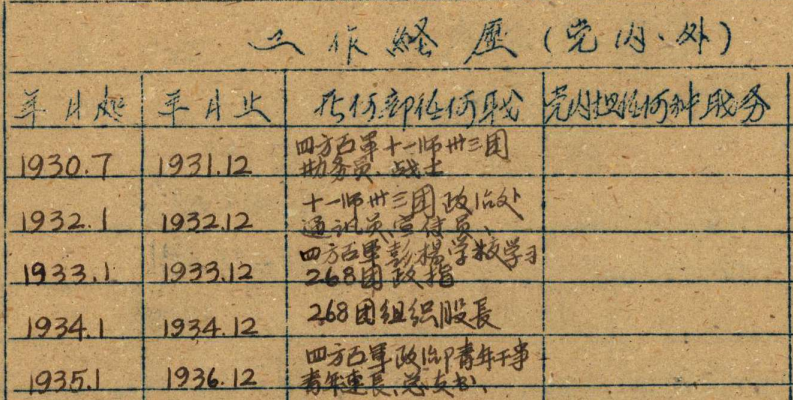 工作經歷(党内、外)
年月起 年月止 在何部任何职 党内担任何种职务
1930.7 1931.12 四方面軍十一师卅三团
勤务员、战士
1932.1 1932.12 十一师卅三团政治处
通訊员、宣传员、
1933.1 1933.12 四方面軍彭楊学校学习
268团政指
1934.1 1934.12 268团组织股長
1935.1 1936.12 四方面軍政治部青年干事
青年連長、总支书、